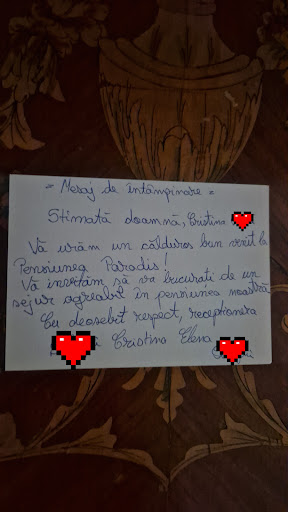 = Mesaj de întâmpinare =
Stimată doamnă, Cristina
Vă urăm un călduros bun venit la
Pensiunea Paradis!
Vă invităm să vă bucurați de un
sejur agreabil în pensiunea noastră
Cu deosebit respect, receptionera
Cristina Elena